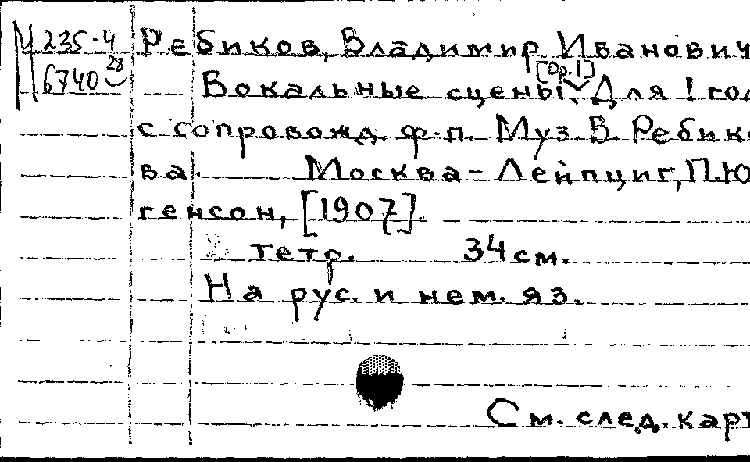 М 235-4 Ребиков, Владимир Иванович
6740 28 [Op. 1]
Вокальные сцены. Для 1 гол
с сопровожд. ф-п. Муз. В. Ребико
ва. Москва-Лейпциг, П. Юр
генсон, [1907].
тетр. 34 см.
На рус. и нем. яз.
См. след. карт